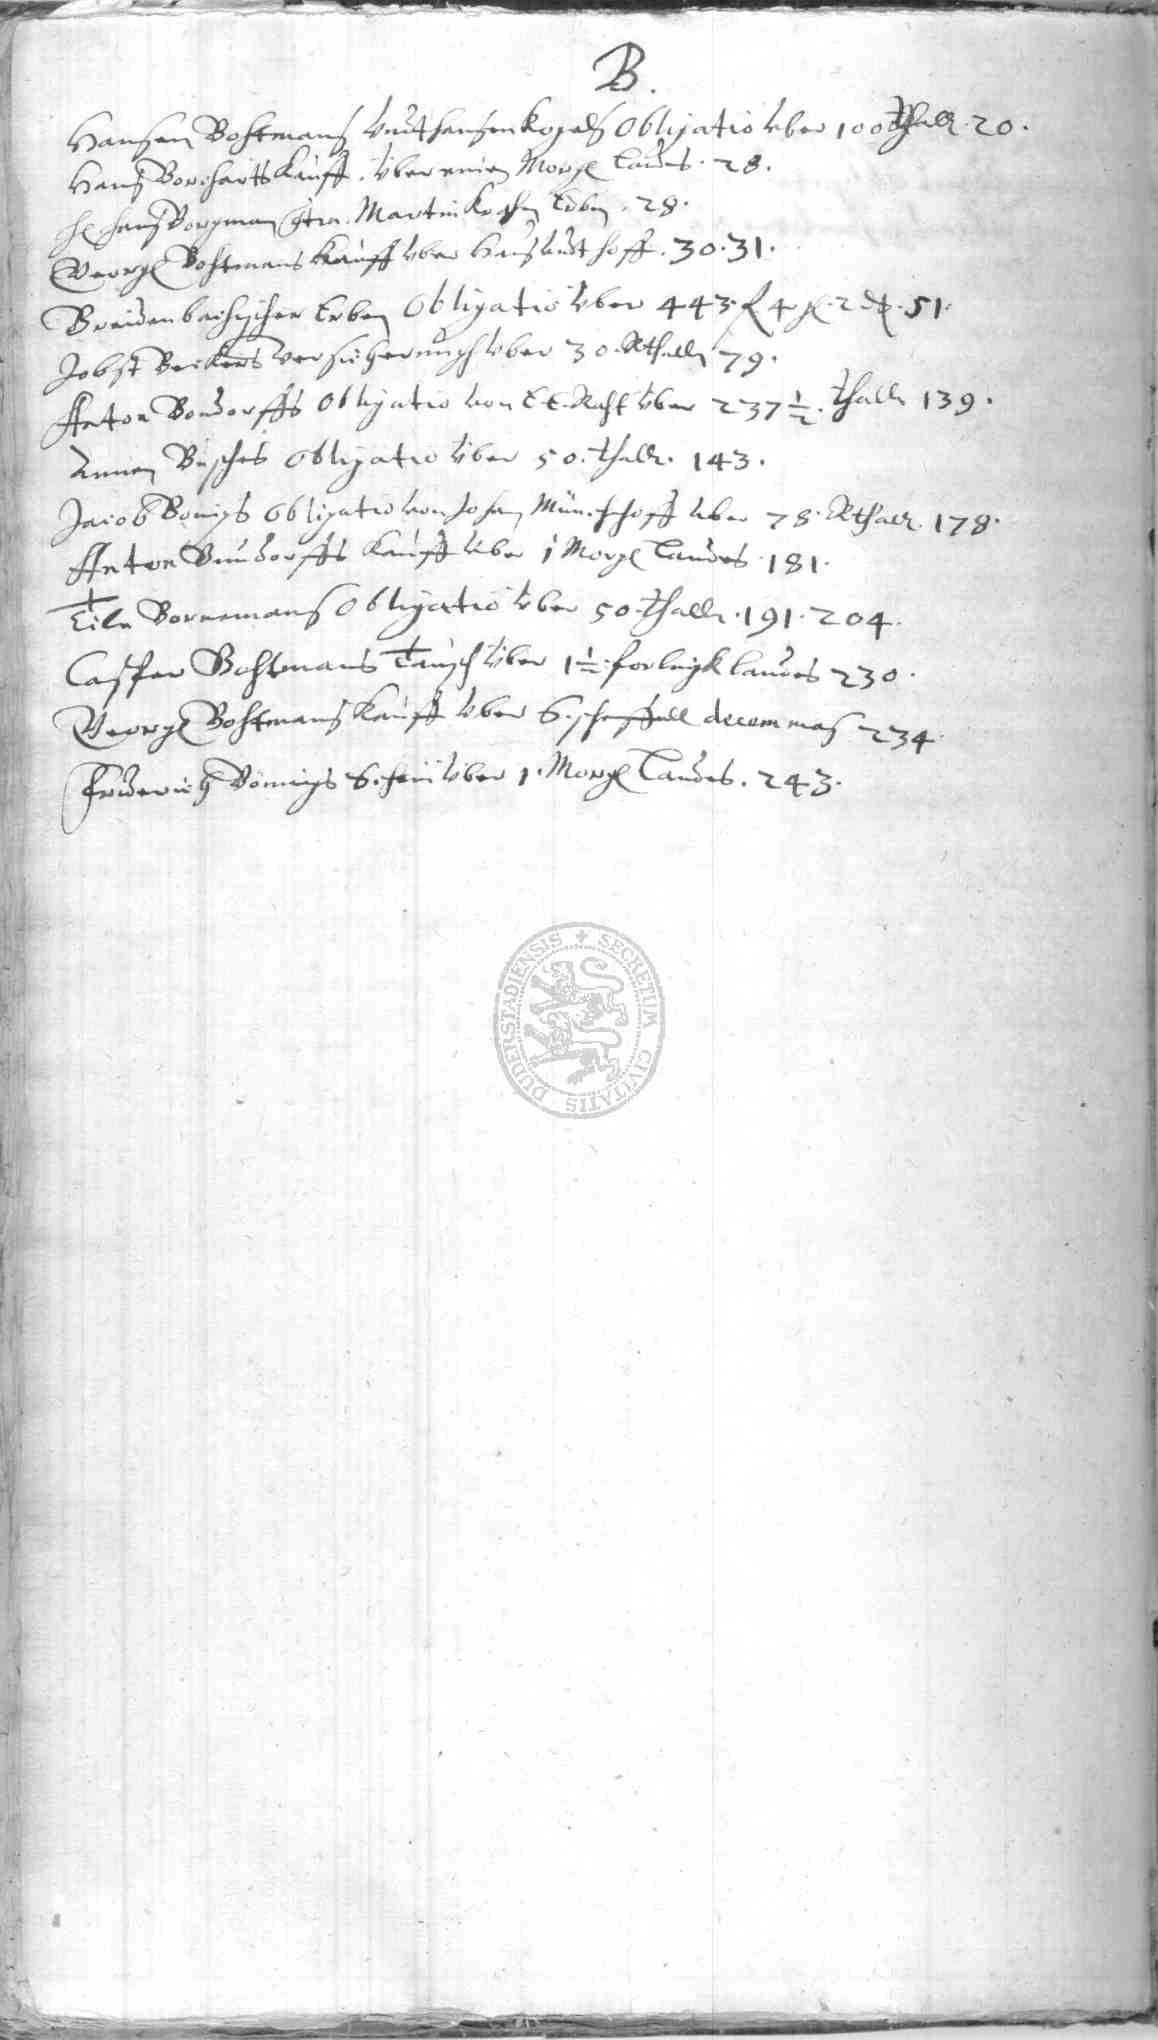 B.
Hansen Bohtmans undt hansen Kogels Obligatio uber 100 thall. 20.
Hans Borcharts Kauff. uber einen Morg. Landes. 28.
H. hans Borgman ctra. Martin Erben. 28.
Georg Bohtmans Kauff uber Haus undt hoff. 30. 31.
Breidenbachischer Erben Obligatio uber 443. f 4 ß. 2 d. 51.
Jobst Beckers versicherungh uber 30. Rthall. 79.
Anton Bondorffs Obligatio von E E. Raht uber 237 1/2. thall. 139.
Annen Busches Obligatio uber 50. thall. 143.
Jacob Bonigs Obligatio von Johan Münchhoff uber 78. Rthall. 178.
Anton Bundorffs Kauff uber 1 Morg. Landes. 181.
Tile Bornemans Obligatio uber 50. thall. 191. 204.
Casper Bohtmans Tausch uber 1 1/2. forlingk landes 230.
Georg Bohtmans Kauff uber 6. scheffell decemmas 234.
Friderich Bönnigs Schein uber 1. Morg. Landes. 243.
DUDERSTADIENSIS SECRETUM CIVITATIS